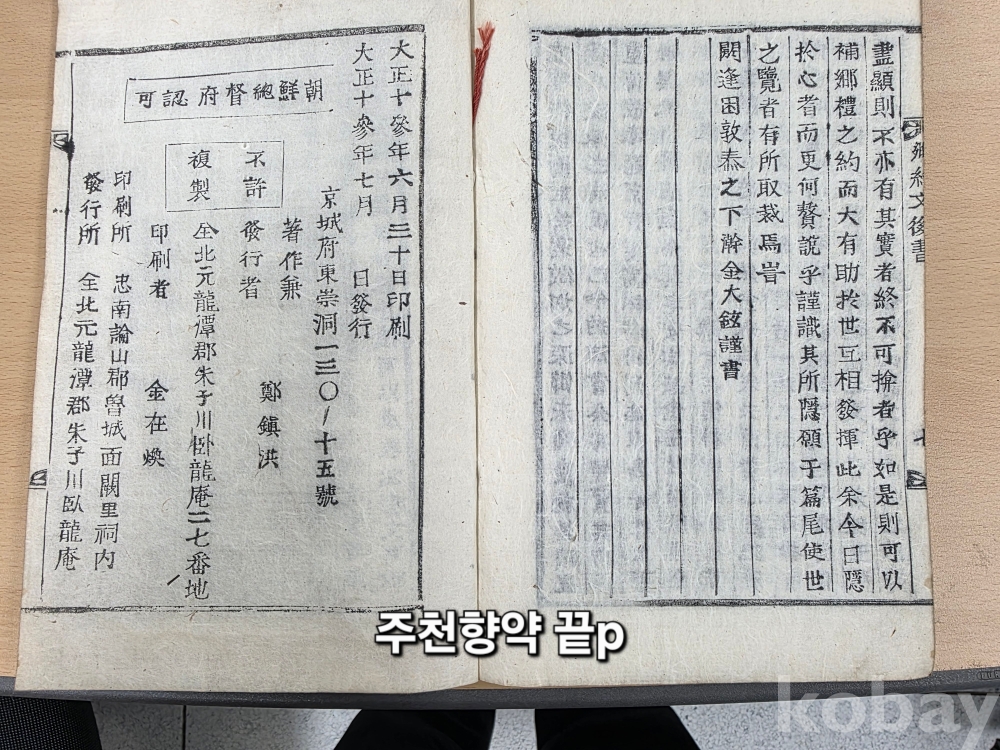 盡顯則不亦有其實者終不可揜者乎如是則可以
補鄕禮之約而大有助於世互相發揮此余今日隱
於心者而更何贅說乎謹識其所隱願于篇尾使世
之覽者有所取裁焉旹
閼逢困敦泰之下澣金大鉉謹書
文後書
大正十參年六月三十日印刷
大正十參年七月 日發行
朝鮮總督府認可
不許
複製
京城府東崇洞一三〇/十五號
著作兼
發行者 鄭鎭洪
全北元龍潭郡朱子川臥龍庵二七番地
印刷者 金在煥
忠南論山郡魯城面闕里祠內
印刷所
發行所 全北元龍潭郡朱子川臥龍庵
주천향약 끝p
kobay